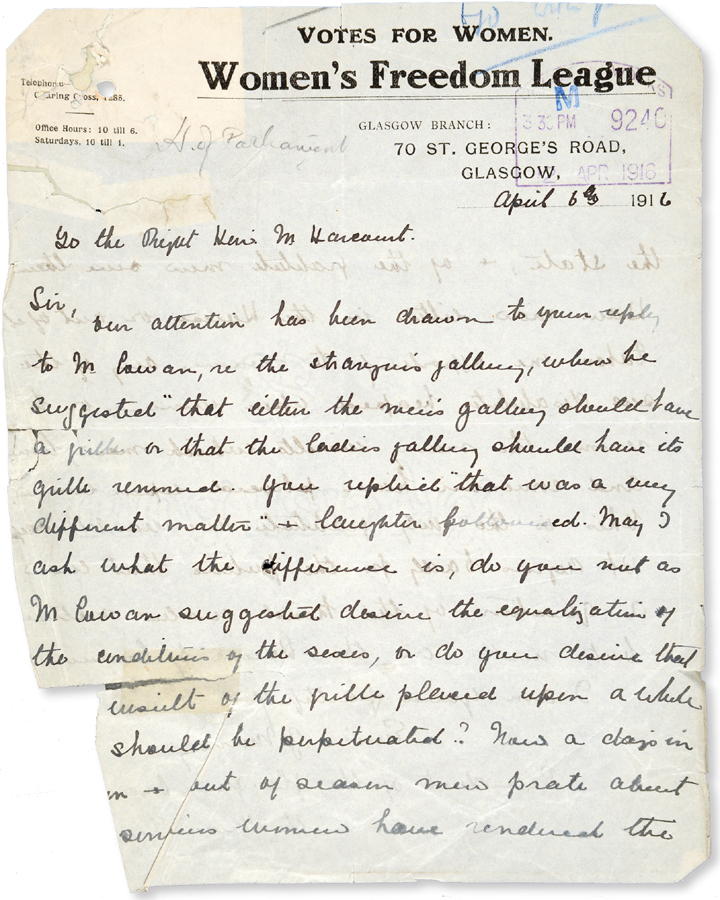 VOTES FOR WOMEN.
Women's Freedom League
Telephone—
Charing Cross, 1288.
Office Hours: 10 till 6.
Saturdays, 10 till 1.
H. of Parliament
GLASGOW BRANCH:
70 ST. GEORGE'S ROAD,
GLASGOW,
M
3 30 PM 9240
APR 1916
April 6th 1916
To the Right Hon. Mr Harcourt.
Sir,
our attention has been drawn to your reply
to Mr Cowan, re the strangers gallery, when he
suggested "that either the men's gallery should have
a grille or that the ladies gallery should have its
grille removed. You replied "that was a very
different matter" + laughter followed. May I
ask what the difference is, do you not as
Mr Cowan suggested desire the equalization of
the conditions of the sexes, or do you desire that
insult of the grille placed upon a whole
should be perpetuated? Now a days in
+ out of season men prate about
services women have rendered the